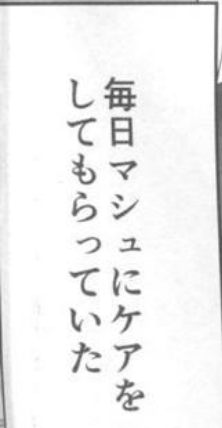 毎日マシュにケアを
してもらっていた